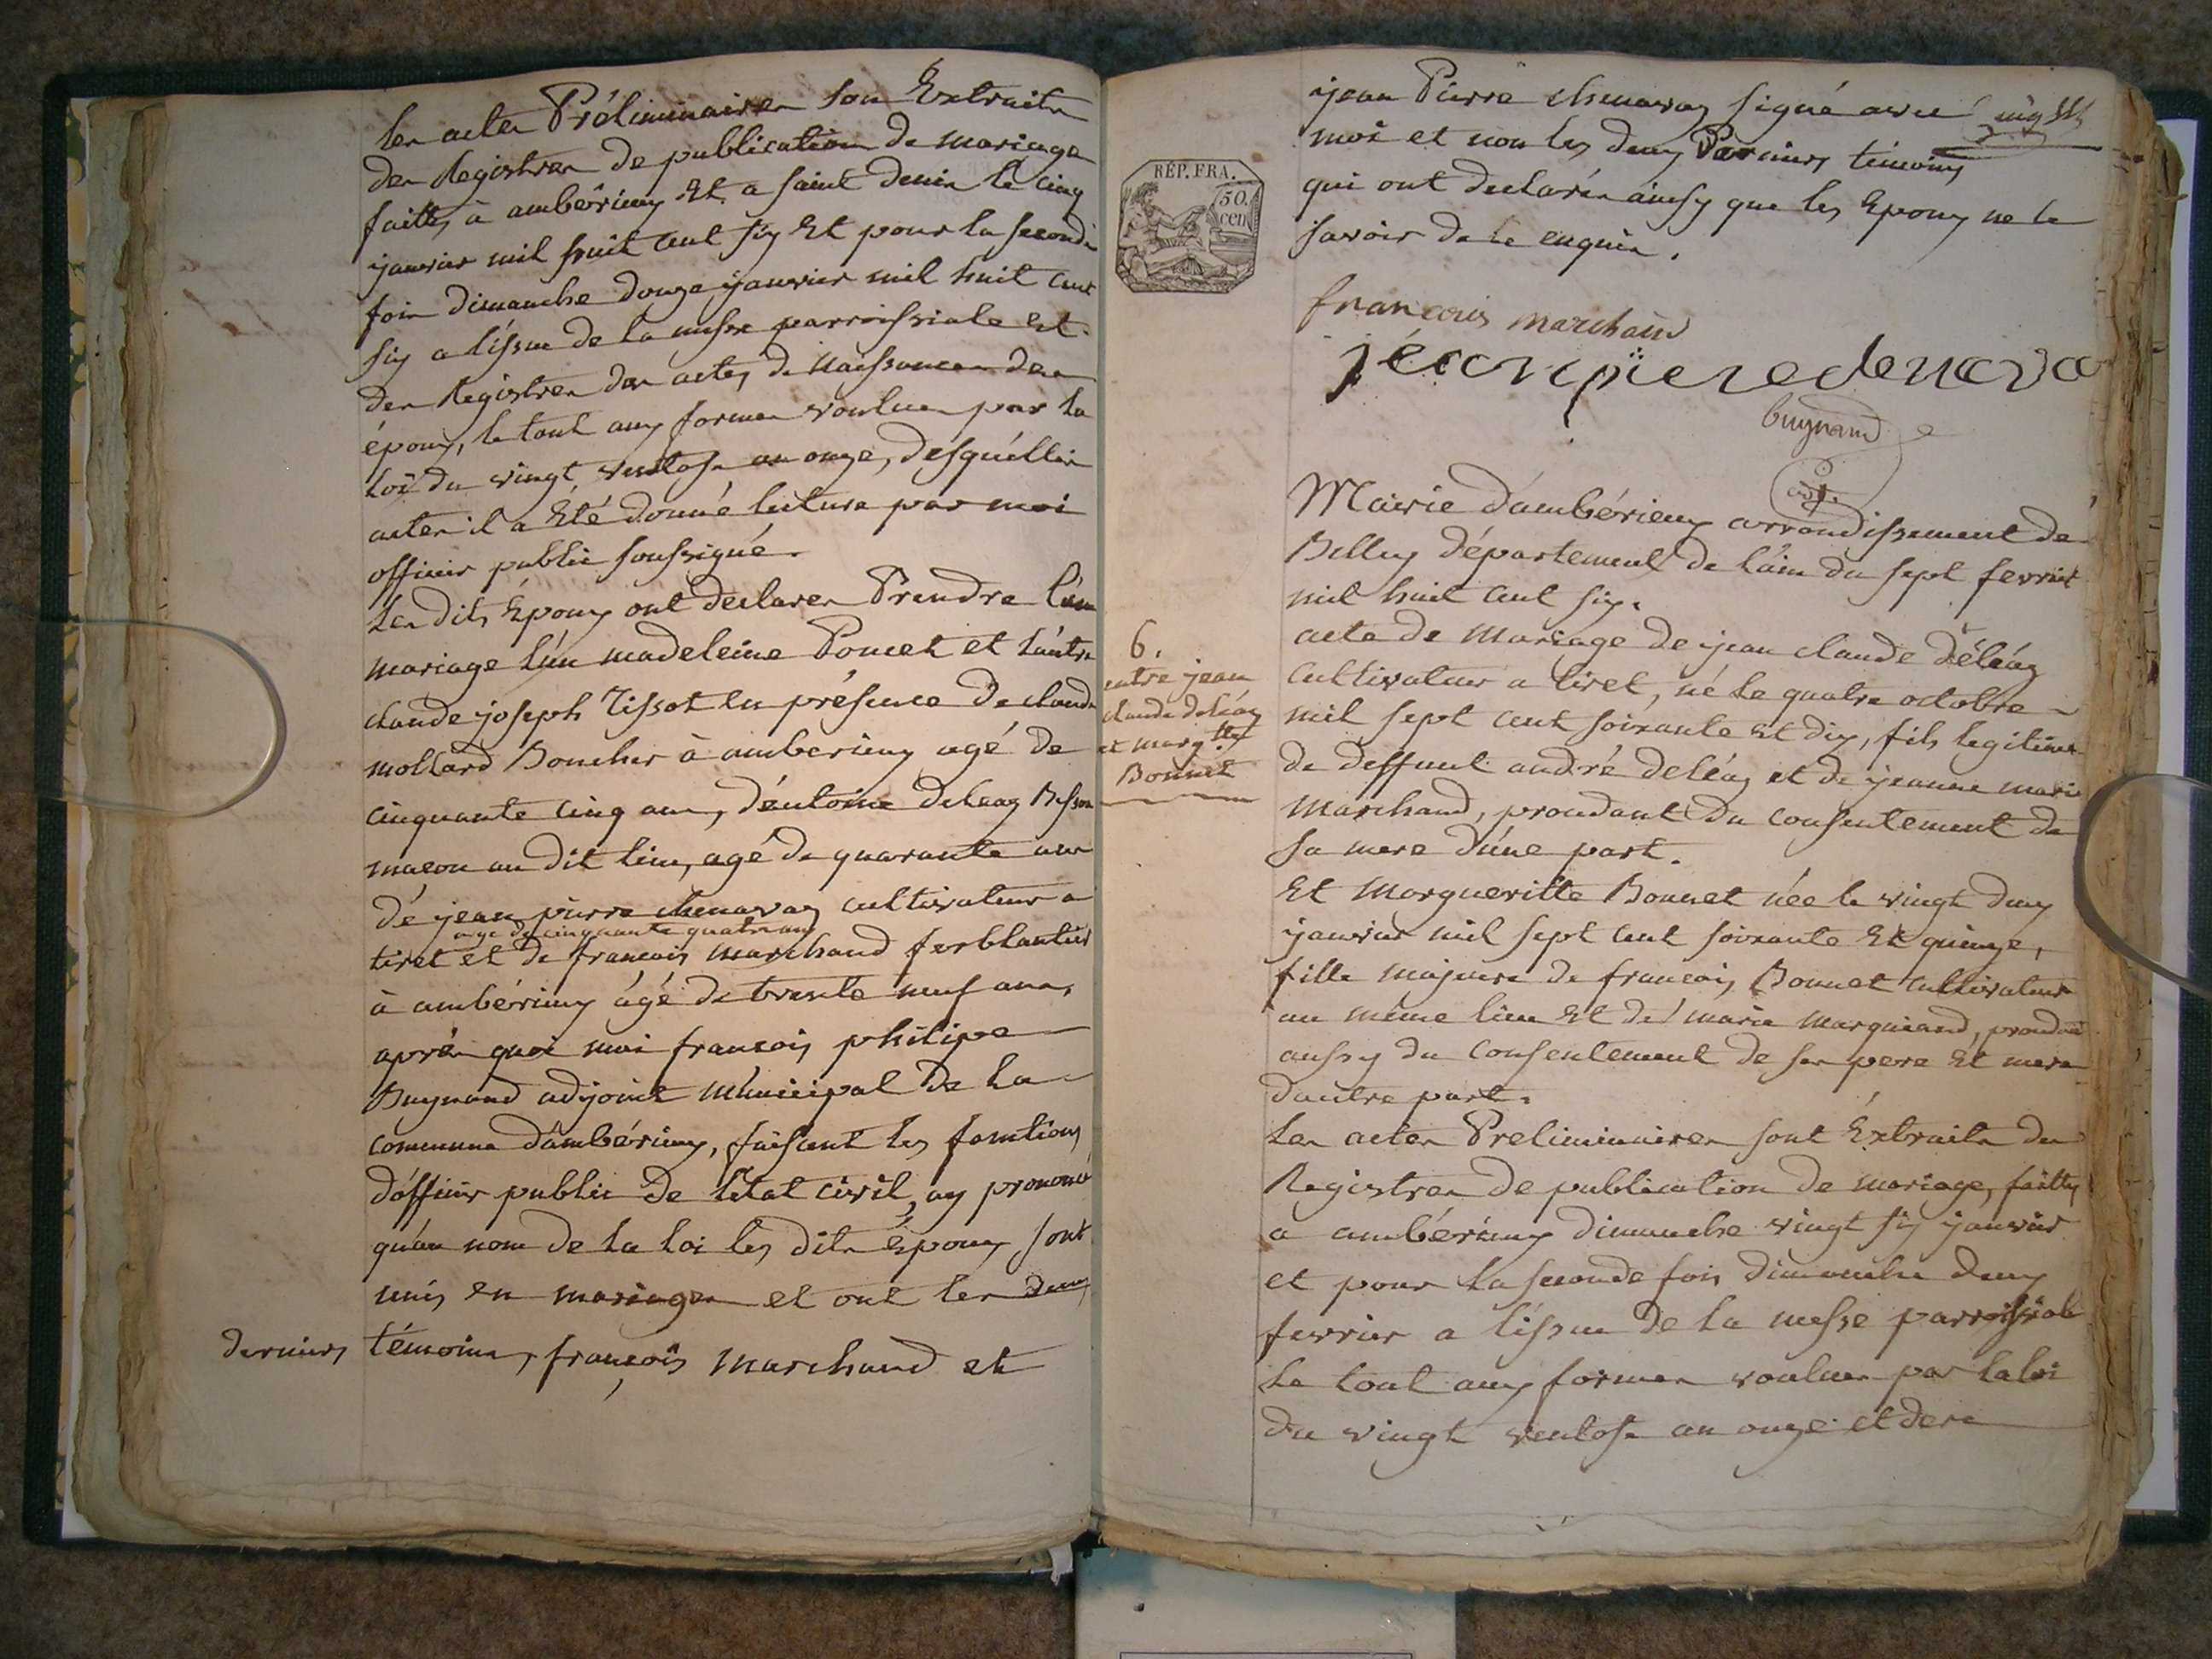 les actes Préliminaires son Extraits
des Registres de publication de mariage
faittes à ambérieux Et a saint denis le cinq
janvier mil huit cent six Et pour la seconde
fois dimanche douze janvier mil huit cent
six a l'issue de la messe parroissiale et
des Registres des actes de Naissances des
époux, le tout aux formes voulues par la
Loi du vingt ventose an onze, desquelles
actes il a Eté donné lecture par moi
officier public soussigné.
Les dits Epoux ont declarés Prendre l'un
mariage l'un madeleine Poncet et l'autre
claude joseph Tissot en présence de claude
mollard Boucher à amberieux agé de
cinquante cinq ans, d'entoine deleaz
macon au dit lieu, agé de quarante ans
dé jean pierre chenavaz cultivateur a
agé de cinquante quatre ans
tiret et de francois marchand ferblantier
à ambérieux agé de trente neuf ans,
après quoi moi francois philipe
Buynand adjoint municipal de la
commune d'ambérieux, faisant les fonctions
d'officier public de l'état civil, ay prononcé
qu'au nom de la loi les dits époux sont
unis en mariage et ont les deux
derniers témoins, françois marchand et
jean Pierre chenavaz signé avec
moi et non les deux Premiers témoins
qui ont declarés ainsy que les Epoux ne le
savoir de ce enquis.
RÉP. FRA.
50.
cen
francois marchand
jéanpierechenava
buynand
adj.
Mairie d'ambérieux arrondissement de
Belley département de l'ain du sept fevrier
mil huit cent six.
6.
entre jean
claude deléaz
et marg.tte
Bonnet
acte de Mariage de jean claude déléaz
cultivateur a tiret, né le quatre octobre
mil sept cent soixante et dix, fils legitime
de deffunt andré deléaz et de jeanne marie
Marchand, procedant du consentement de
sa mere d'une part.
Et Margueritte Bonnet née le vingt deux
janvier mil sept cent soixante Et quinze,
fille majeure de francois Bonnet cultivateur
au même lieu Et de marie
aussy du consentement de ses pere Et mere
d'autre part.
Les actes Preliminaires sont Extraits des
Registres de publication de mariage, faittes
a ambérieux dimanche vingt six janvier
et pour la seconde fois dimanche deux
fevrier a l'issue de la messe parroissiale
le tout aux formes voulues par la loi
du vingt ventose an onze et des